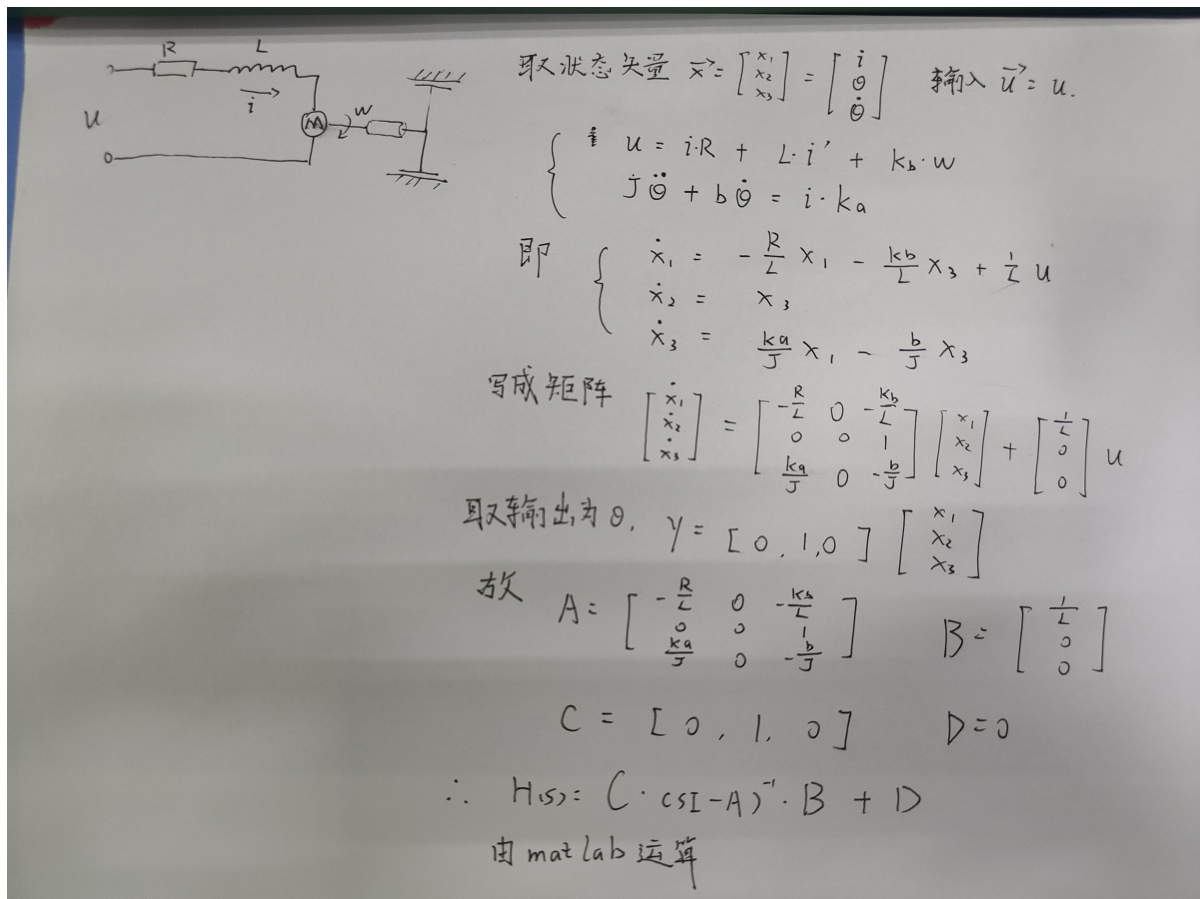 R L
i
U
M
w
取状态矢量 x⃗ = [x₁ x₂ x₃] = [i θ θ̇] 输入 u⃗ = u.
u = i·R + L·i′ + k_b·w
Jθ̈ + bθ̇ = i·ka
即
ẋ₁ = -R/L x₁ - kb/L x₃ + 1/L u
ẋ₂ = x₃
ẋ₃ = ka/J x₁ - b/J x₃
写成矩阵 [ẋ₁ ẋ₂ ẋ₃] = [-R/L 0 -kb/L; 0 0 1; ka/J 0 -b/J] [x₁ x₂ x₃] + [1/L 0 0] u
取输出为θ, y = [0, 1, 0] [x₁ x₂ x₃]
故 A = [-R/L 0 -kb/L; 0 0 1; ka/J 0 -b/J] B = [1/L 0 0]
C = [0, 1, 0] D = 0
∴ H(s) = C·(sI-A)⁻¹·B + D
由matlab运算